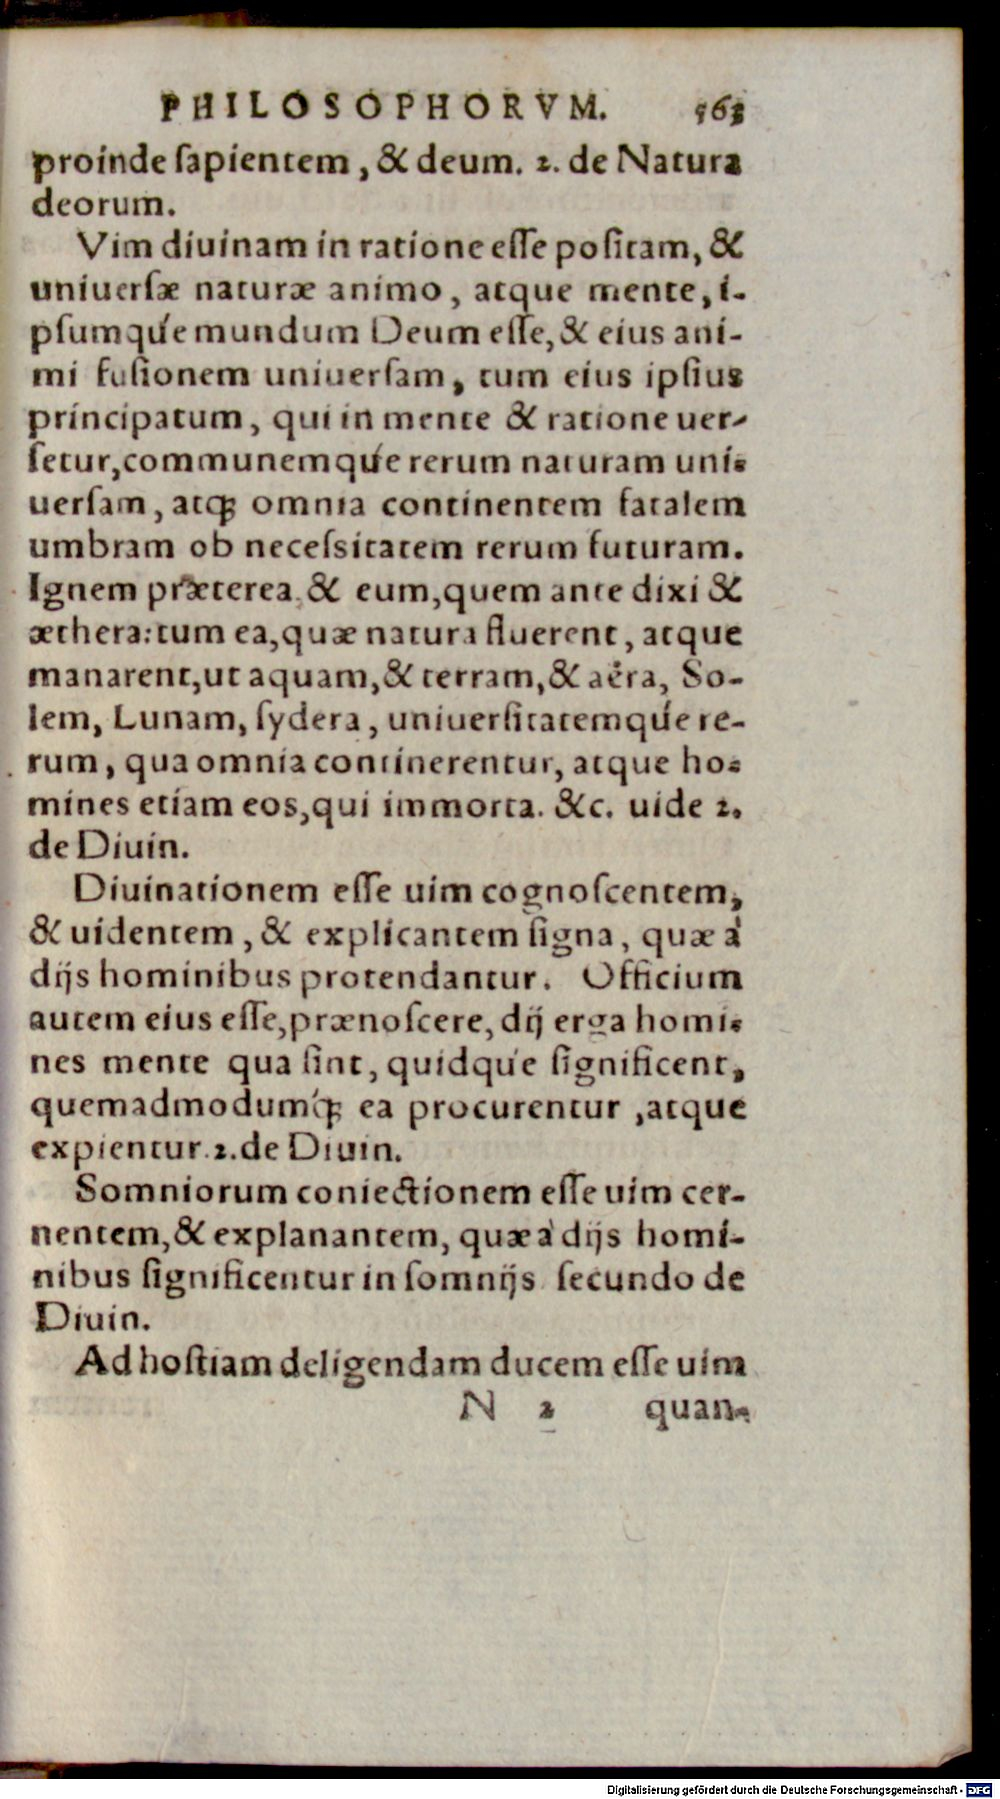 PHILOSOPHORVM. 563
proinde ſapientem, & deum. 2. de Natura
deorum.
Vim diuinam in ratione eſſe poſitam, &
uniuerſæ naturæ animo, atque mente, i-
pſumq́ue mundum Deum eſſe, & eius ani-
mi fuſionem uniuerſam, tum eius ipſius
principatum, qui in mente & ratione uer-
ſetur, communemq́ue rerum naturam uni-
uerſam, atqꝫ omnia continentem fatalem
umbram ob neceſsitatem rerum futuram.
Ignem præterea & eum, quem ante dixi &
æthera: tum ea, quæ natura fluerent, atque
manarent, ut aquam, & terram, & aëra, So-
lem, Lunam, ſydera, uniuerſitatemq́ue re-
rum, qua omnia continerentur, atque ho-
mines etiam eos, qui immorta. &c. uide 2.
de Diuin.
Diuinationem eſſe uim cognoſcentem,
& uidentem, & explicantem ſigna, quæ à
dijs hominibus protendantur. Officium
autem eius eſſe, prænoſcere, dij erga homi-
nes mente qua ſint, quidq́ue ſignificent,
quemadmodumq́ꝫ ea procurentur, atque
expientur. 2. de Diuin.
Somniorum coniectionem eſſe uim cer-
nentem, & explanantem, quæ à dijs homi-
nibus ſignificentur in ſomnijs ſecundo de
Diuin.
Ad hoſtiam deligendam ducem eſſe uim
N 2 quan-
Digitalisierung gefördert durch die Deutsche Forschungsgemeinschaft - DFG